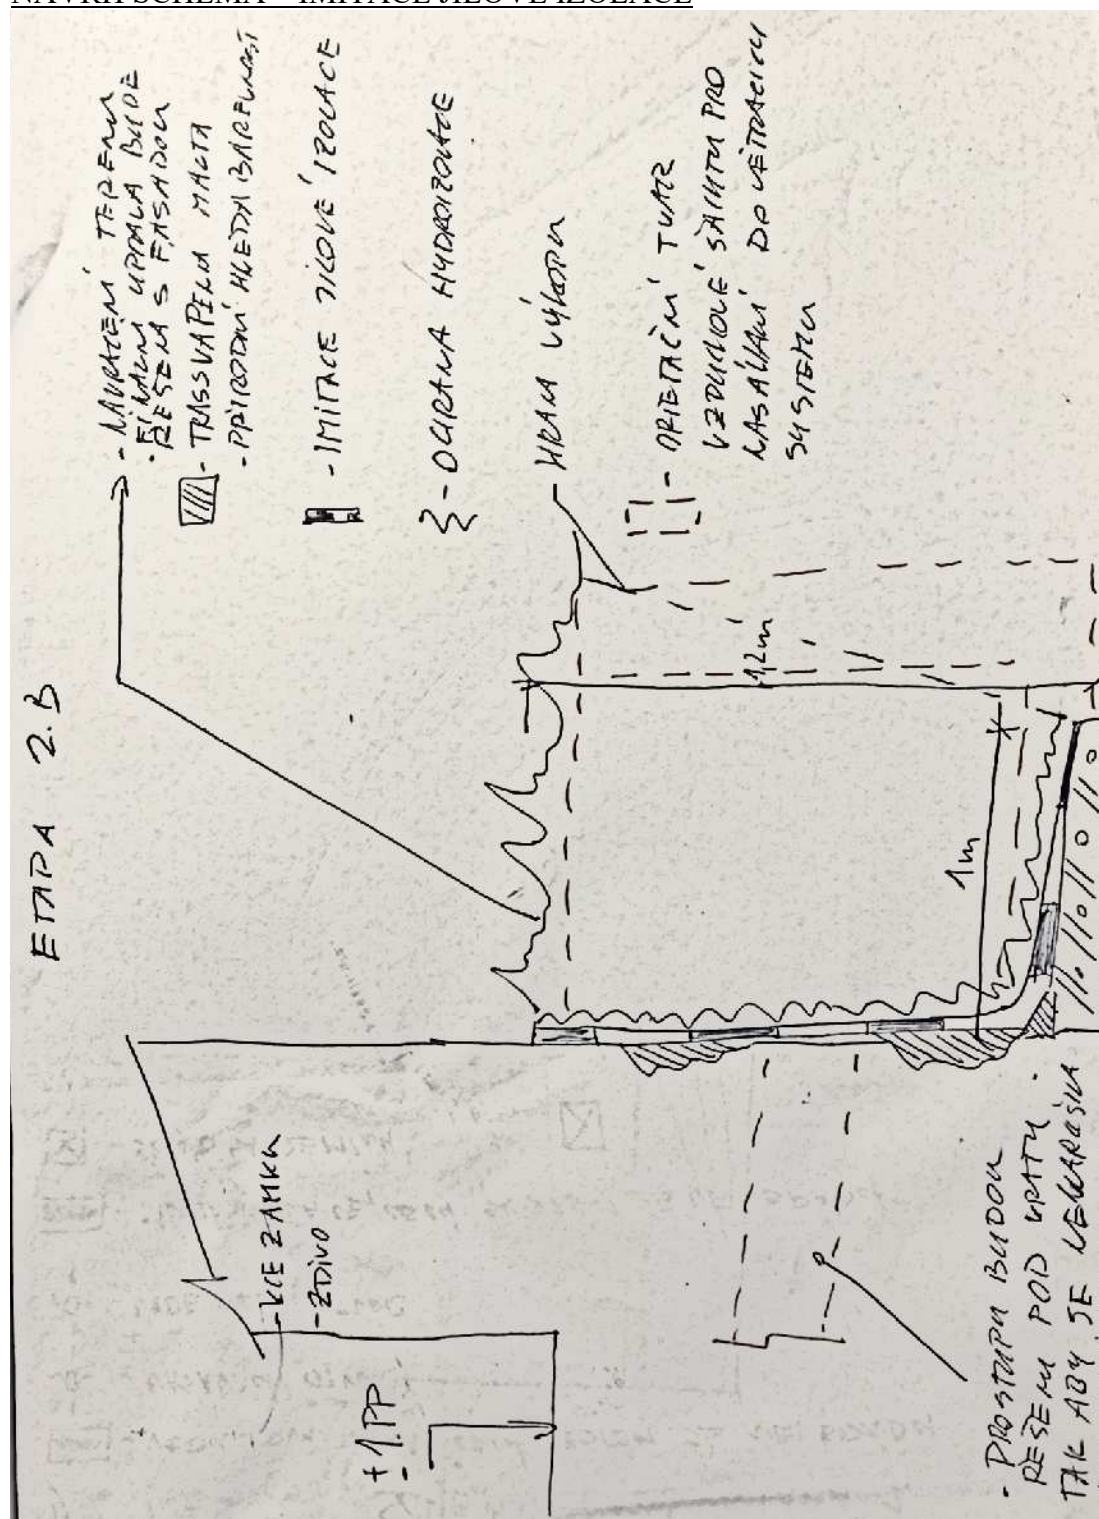 NÁVRH SCHÉMA – IMITACE JÍLOVÉ IZOLACE
ETAPA 2.B
- NAVRÁCENÍ TERÉNU
• FINÁLNÍ ÚPRAVA BUDE
ŘEŠENA S FASÁDOU
- TRASSVÁPENÁ MALTA
- PŘÍRODNÍ HNĚDÁ BAREVNOST
- IMITACE JÍLOVÉ IZOLACE
- OCHRANA HYDROIZOLACE
- HRANA VÝKOPU
- ORIETAČNÍ TVAR
VZDUCHOVÉ ŠACHTY PRO
NASÁVÁNÍ DO VĚTRACÍHO
SYSTÉMU
1,2m
1m
- KCE ZÁMKU
- ZDIVO
± 1.PP
• PROSTUPY BUDOU
ŘEŠENY POD VRATY.
TAK ABY SE NENARUŠILA